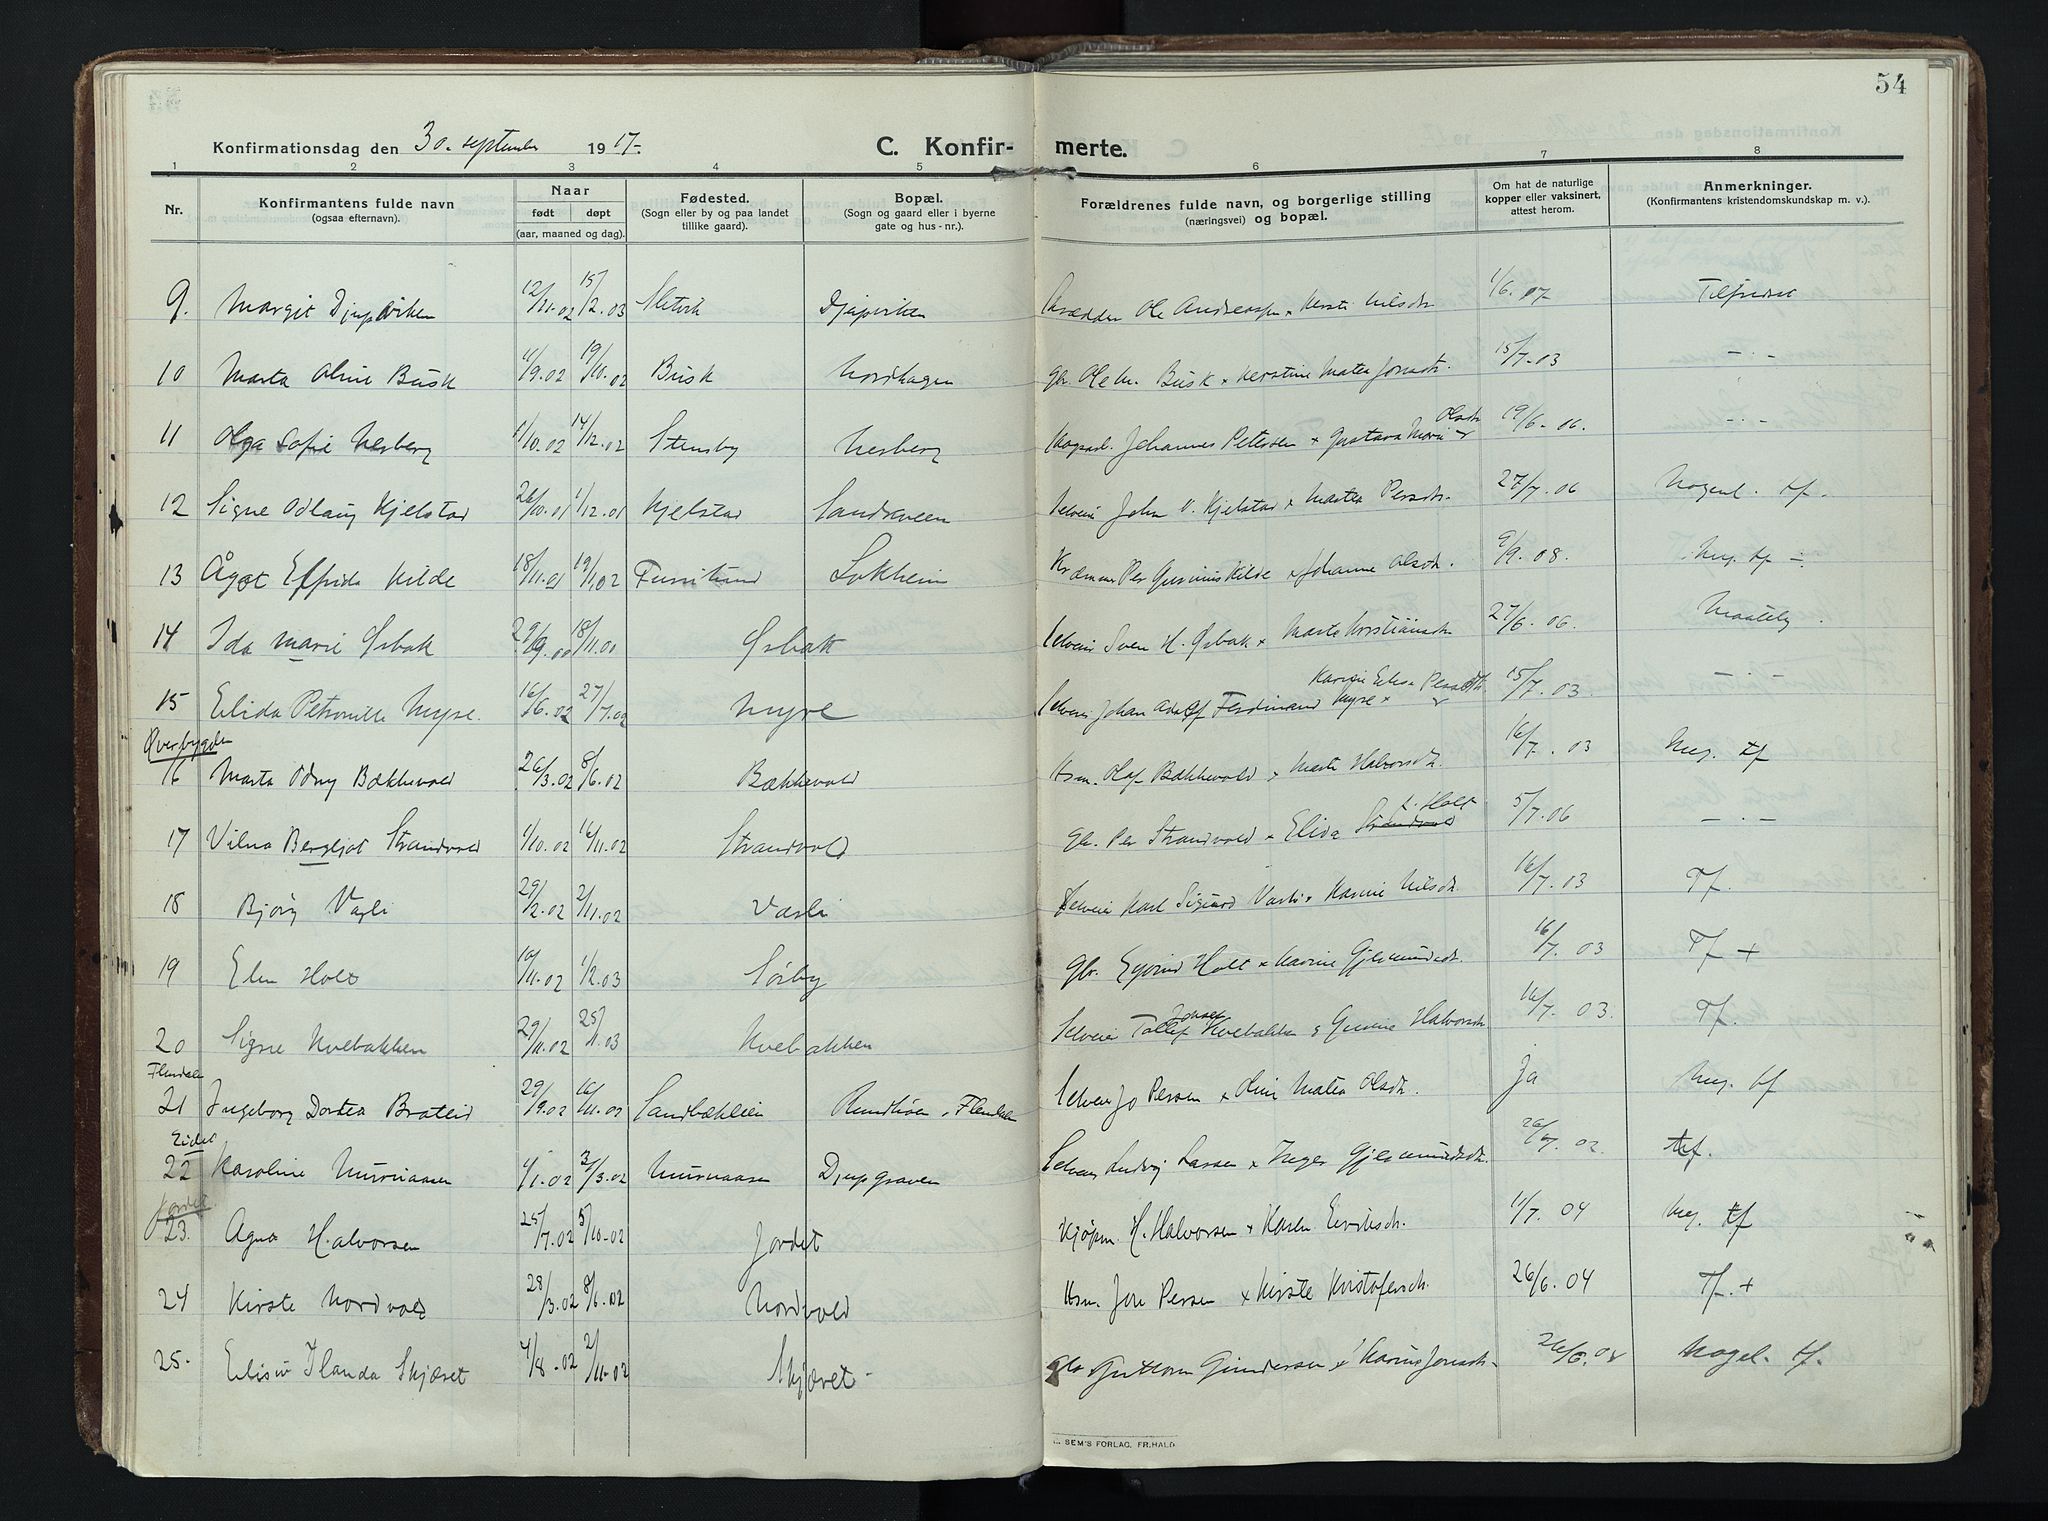 54
Konfirmationsdag den 30. september 1917.
C. Konfir- merte.
1 2 3 4 5 6 7 8
Nr.
Konfirmantens fulde navn
(ogsaa efternavn).
Naar
født døpt
(aar, maaned og dag).
Fødested.
(Sogn eller by og paa landet
tillike gaard).
Bopæl.
(Sogn og gaard eller i byerne
gate og hus - nr.).
Forældrenes fulde navn, og borgerlige stilling
(næringsvei) og bopæl.
Om hat de naturlige
kopper eller vaksinert,
attest herom.
Anmerkninger.
(Konfirmantens kristendomskundskap m. v.).
9. Margit Djupviken 12/11.02 15/2.03 Djupviken Ole Andreassen x Kerste Nilsdtr. 1/6.07 Tilfredsst
10 Marta Oline Busk 11/9.02 19/10.02 Busk Nordhagen gbr. Ole M. Busk x Kerstine Matea Jonsdtr. 15/7.03 — . —
11 Olga Sofie Nesberg 1/10.02 14/12.02 Stensby Nesberg Johannes Petersen x Gustava Marie Olsdtr 19/6-06. — . —
12 Signe Odlaug Kjelstad 26/10.01 1/12.01 Kjelstad Sandsveen Selveier John O. Kjelstad x Martea Persdtr. 27/7.06 Nogenl. tf.
13 Ågot Elfrida Kilde 18/11.01 19/1.02 Furulund Solheim Kræmmer Per Kilde x Johanne Olsdtr. 9/9.08. Mg. tf
14 Ida Marie Øsbak 29/9.00 18/11.00 Øsbak Selveier Sven H. Øsbak x Marte Kristiansdtr 27/6.06. Maatelig.
15 Elida Petronille Myre. 16/6.02 27/7.02 Myre Selveier Johan Adolf Ferdinand Myre x Karine Elise Persdtr 15/7.03 — . —
Øverbygden
16 Marta Odny Bækkevold 26/3.02 8/6.02 Bækkevold Hsm. Olaf Bækkevold x Marte Halvorsdtr. 16/7.03 Mg. tf
17 Vilna Bergljot Strandvold 1/10.02 16/11.02 Strandvold gbr. Per Strandvold x Elida Strandvold f. Holt 5/7.06 — . —
18 Bjørg Vasli 29/2.02 2/11.02 Vasli Selveier Karl Sigurd Vasli x Karine Nilsdtr. 16/7.03 Tf.
19 Elen Holt 10/11.02 1/2.03 Sörby gbr. Eyvind Holt x Karine Gjermundsdtr. 16/7.03 Tf +
20 Signe Kvebakken 29/11.02 25/1.03 Kvebakken Selveier Tollef Jonsen Kvebakken x Gurine Halvorsdtr 16/7.03. Tf.
Flendalen
21 Ingeborg Dortea Brateid 29/9.02 16/11.02 Sandbæklien Rundhöen, Flendalen Selveier Jo Persen x Oline Matea Olsdtr. Ja Mg. tf
Eidet
22 Karoline Nysnaasen 4/1.02 31/3.02 Nysnaasen Djupgraven Selveier Ludvig Larsen x Inger Gjermundsdtr. 26/7.02. tf.
Jordet
23. Agna Halvorsen 25/7.02 5/10.02 Jordet Kjøpm. H. Halvorsen x Karen Eeriksdtr. 11/7.04 Mg. tf
24 Kirste Nordvold 28/3.02 8/6.02 Nordvold Hsm. Jon Persen x Kirste Kristofersdtr. 26/6.04 Tf. +
25. Elisiv Ilanda Skjæret 4/8.02 2/11.02 Skjæret Gbr Guttorm Gundersen x Karine Jonsdtr. Nogel. tf.
SEM'S FORLAG, FR.HALD